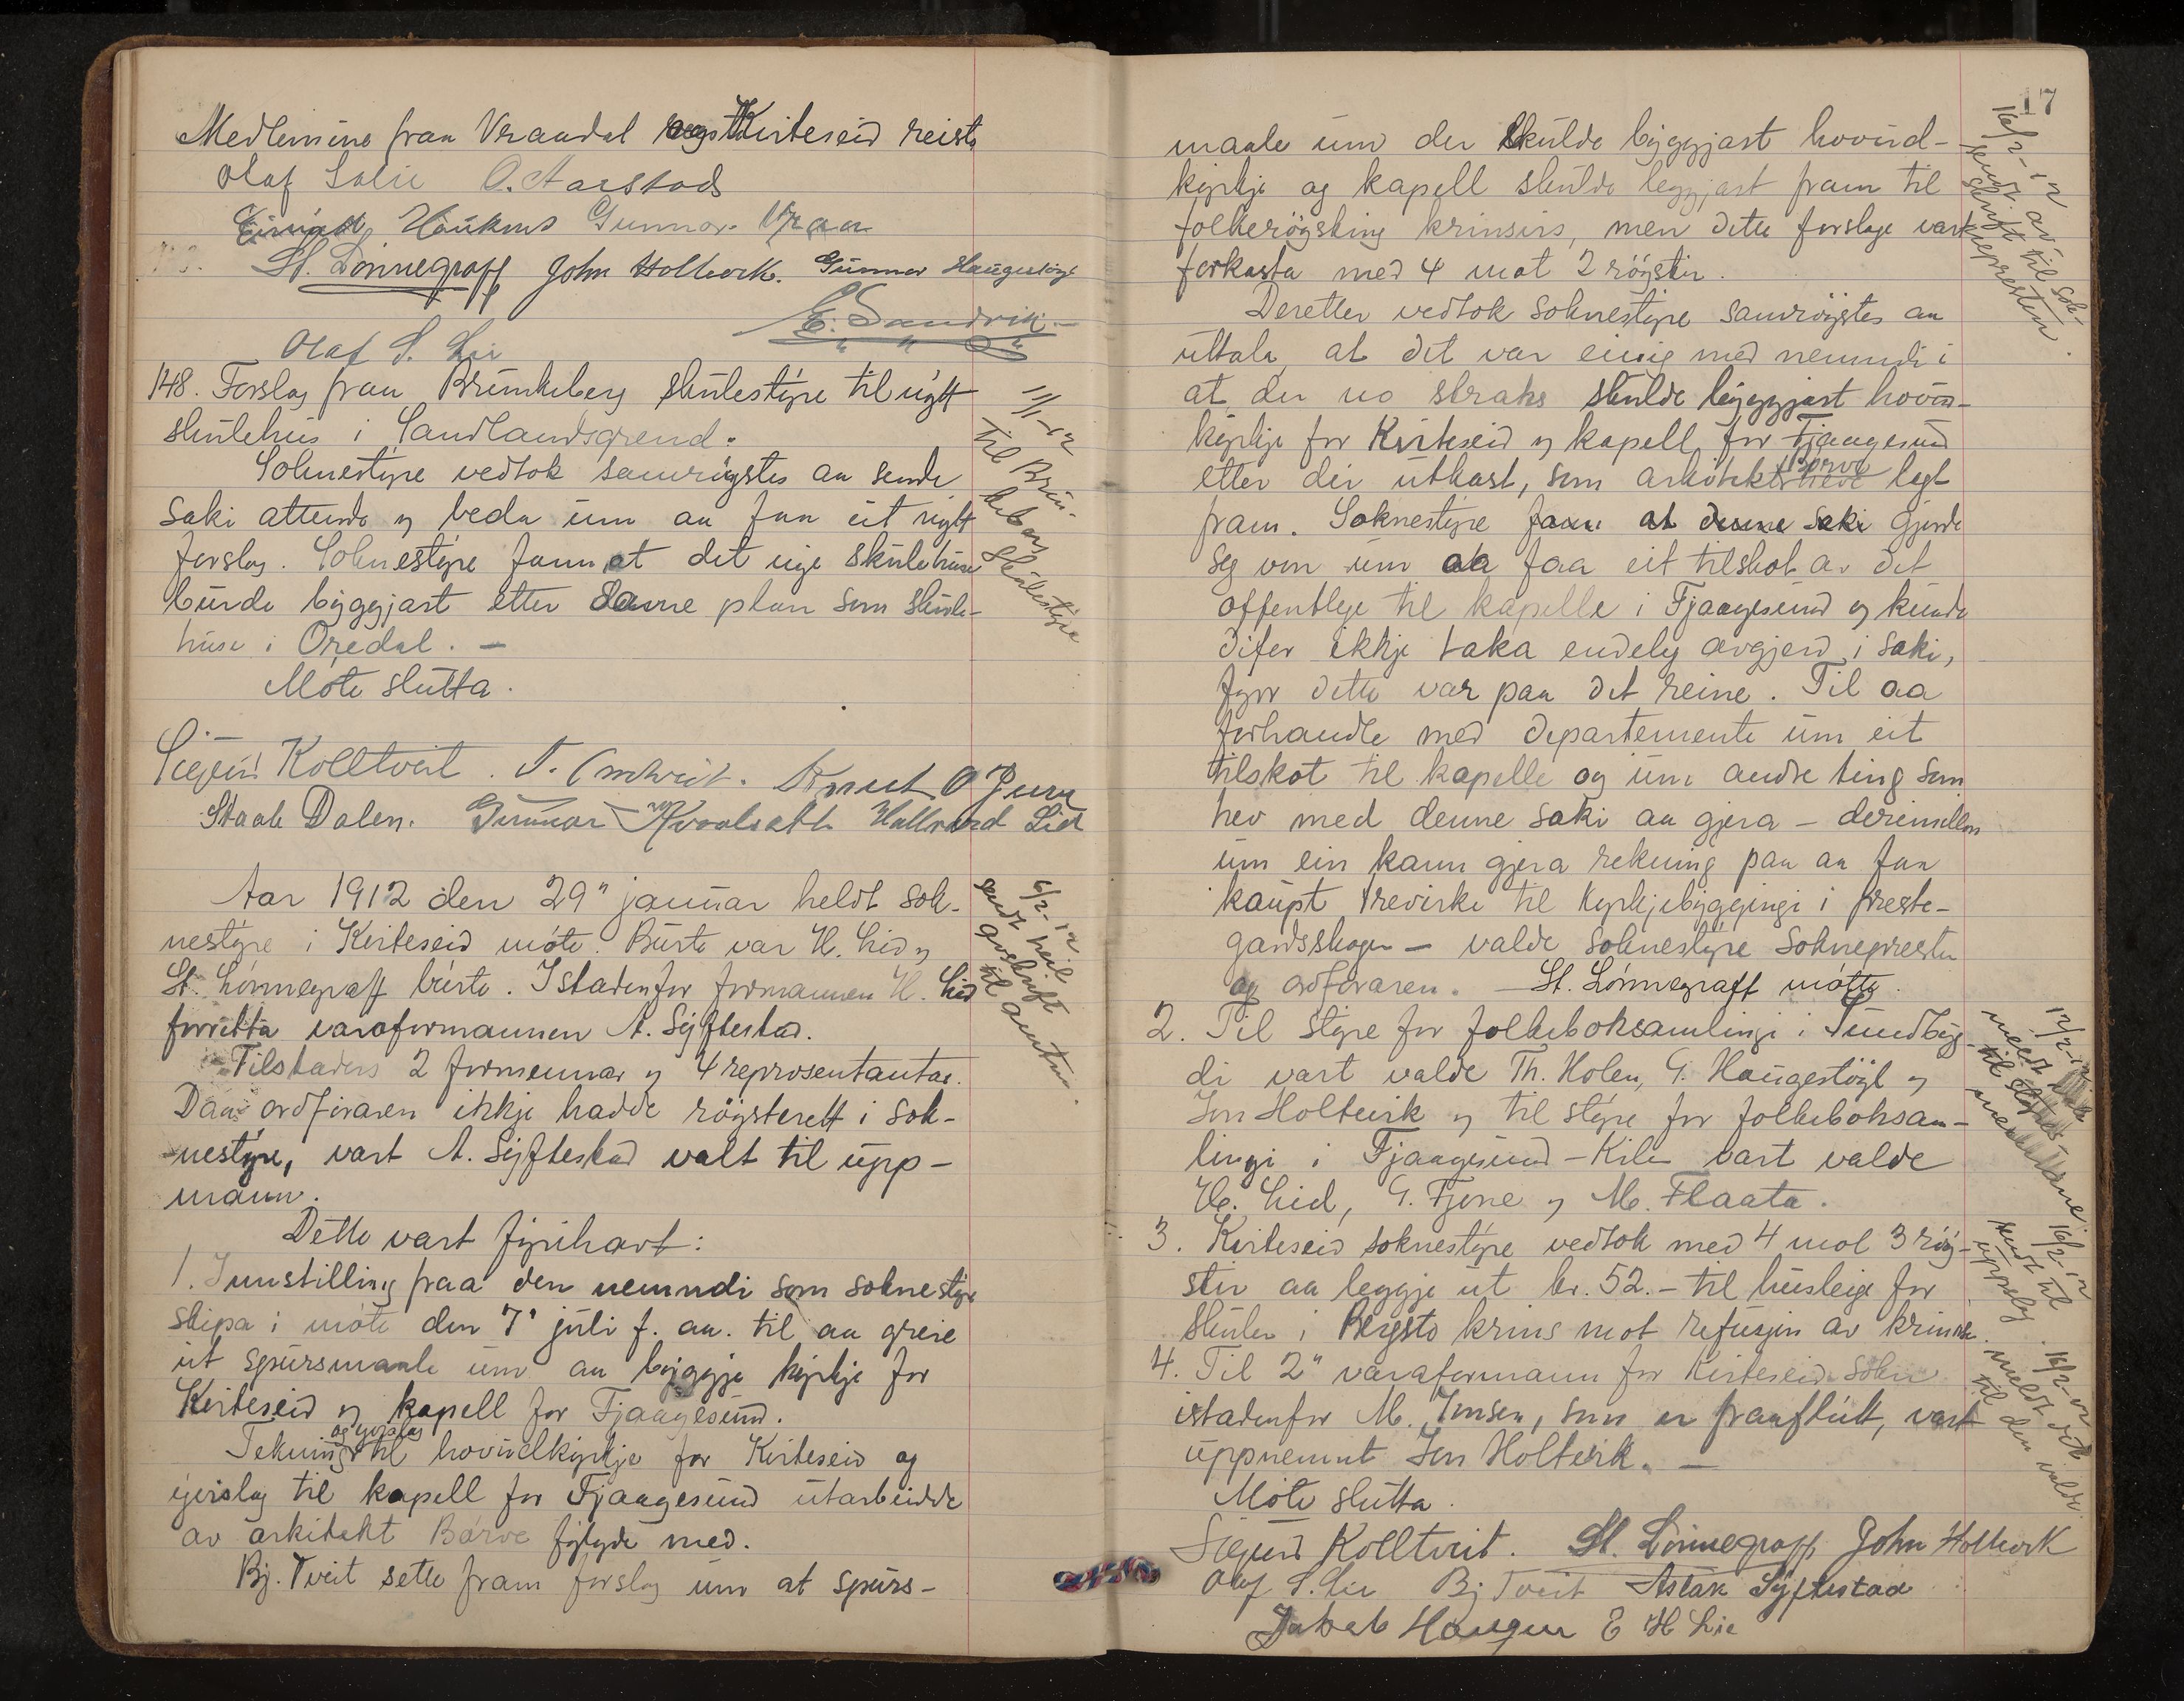 Medlemine fraa Vraadal og Kviteseid reiste
Olaf Solli O. Aarstad
Haukom Gunnar Vraa
St. Lönnegraff John Holtvik. Gunnar Haugestøyl
E. Sandvik
Olaf S. Lie
148. Forslag fraa Brunkeberg skulestyre til nytt
skulehus i Sandlandsgrend.
Soknestyre vedtok samrøystes aa sende
saki attende og beda um aa faa eit nytt
forslag. Soknestyre fann at det nye skulehuse
burde byggjast etter same plan som skule-
huse i Øredal. –
Møte slutta.
11/1-12
til Brun-
keberg
skulestyre
Sigurd Kolltveit. T. Omtveit. Knut O Juve
Staale Dalen. Gunnar Kvaalsath Hallvard Lid
Aar 1912 den 29" januar heldt sok-
nestyre i Kviteseid møte. Burte var H. Lid og
St. Lönnegraff burte. Istadenfor formannen H. Lid
forretta varaformannen A. Syftestad.
Tilstades 2 formennar og 4 representantar.
Daa ordføraren ikkje hadde røysterett i sok-
nestyre, vart A. Syftestad valt til upp-
mann.
6/2-12
sendt heil
avskrift
til amtm.
Dette vart fyrihavt:
1. Innstilling fraa den nemndi som soknestyre
skipa i møte den 7' juli f. aa. til aa greie
ut spursmaale um aa byggje kyrkje for
Kviteseid og kapell for Fjaagesund.
og yverslag
Tekning til hovudkyrkje for Kviteseid og
yverslag til kapell for Fjaagesund utarbeidde
av arkitekt Børve fylgde med.
Bj. Tveit sette fram forslag um at spurs-
17
maale um der skulde byggjast hovud-
kyrkje og kapell skulde leggjast fram til
folkerøysting krinsvis, men dette forslage vart
forkasta med 4 mot 2 røyster.
16/2-12
sendt av-
skrift til sok-
nepresten.
Deretter vedtok soknestyre samrøystes aa
uttala, at det var einig med nemndi i
at der no straks skulde byggjast hovud-
kyrkje for Kviteseid og kapell for Fjaagesund
Børve
etter dei utkast, som arkitekt heve lagt
fram. Soknestyre fann at denne saki gjorde
seg von um aa faa eit tilskot av det
offentlege til kapelle i Fjaagesund og kunde
difor ikkje taka endeleg avgjerd i saki,
fyrr dette var paa det reine. Til aa
forhandle med departemente um eit
tilskot til kapelle og um andre ting som
hev med denne saki aa gjera – derimillom
um ein kann gjera rekning paa aa faa
kaupt trevirke til kyrkjebyggjingi i preste-
gardsskogen – valde soknestyre soknepresten
og ordføraren. – St. Lönnegraff møtte.
2. Til styre for folkeboksamlingi i Sundbyg-
di vart valde Th. Holen, G. Haugestøyl og
Jon Holtvik og til styre for folkeboksam-
lingi i Fjaagesund – Kile vart valde
H. Lid, G. Fjone og M. Flaata.
12/2-12
meldt
til
3. Kviteseid soknestyre vedtok med 4 mot 3 røy-
ster aa leggje ut kr. 52.- til husleige for
skulen i Bergsto krins mot refusjon av krinsen.
16/2-12
sendt til
uppslag.
4. Til 2" varaformann for Kviteseid sokn
istadenfor M. Jonsen, som er fraaflutt, vart
uppnemnt Jon Holtvik. –
16/2-12
meldt
til den valde
Møte slutta.
Sigurd Kolltveit. St. Lönnegraff John Holtvik
Olaf S. Lie Bj Tveit Aslak Syftestad
Jakob Haugen E H Lie